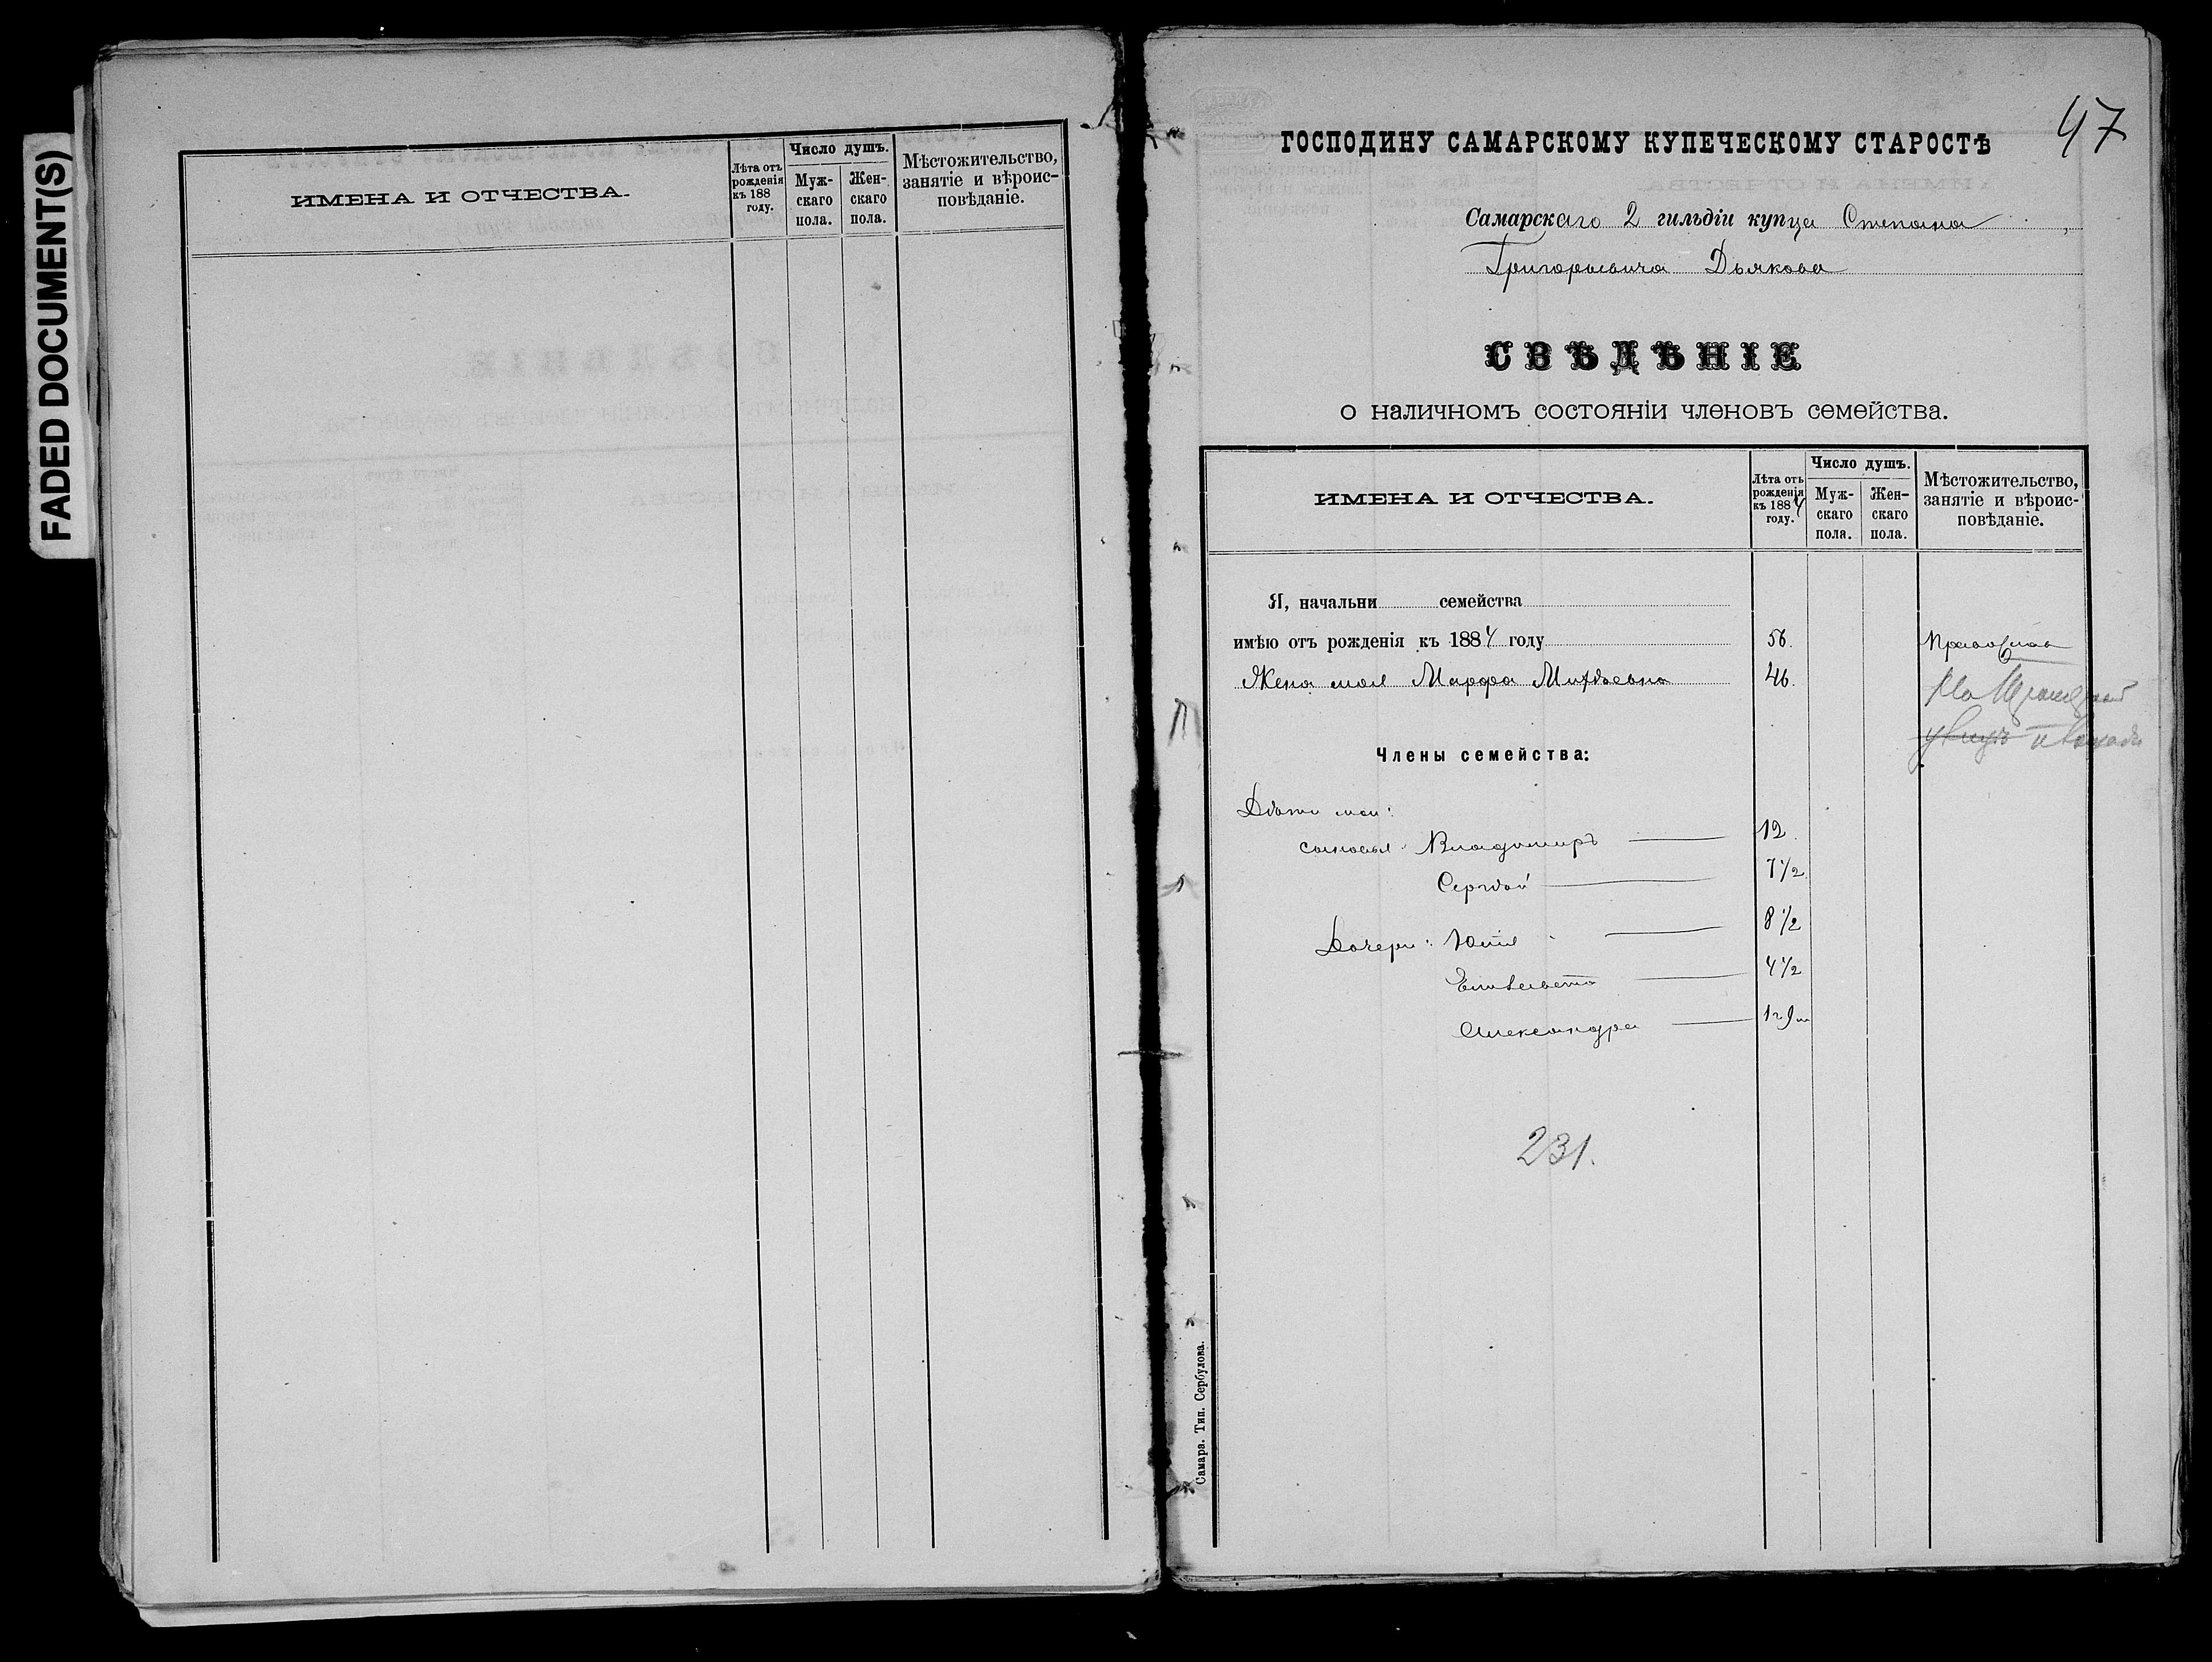 FADED DOCUMENT(S)
ИМЕНА И ОТЧЕСТВА.
Лѣта отъ рожденія къ 188 году.
Число душъ.
Мужскаго пола.
Женскаго пола.
Мѣстожительство,
занятіе и вѣроис-
повѣданіе.
47
ГОСПОДИНУ САМАРСКОМУ КУПЕЧЕСКОМУ СТАРОСТѢ
Самарскаго 2 гильдіи купца Степана
Григорьевича Дьякова
СВѢДѢНІЕ
о наличномъ состояніи членовъ семейства.
ИМЕНА И ОТЧЕСТВА.
Лѣта отъ рожденія къ 1884 году.
Число душъ.
Мужскаго пола.
Женскаго пола.
Мѣстожительство,
занятіе и вѣроис-
повѣданіе.
Я, начальни семейства
имѣю отъ рожденія къ 1884 году 56.
Жена моя Марфа 46.
Члены семейства:
Дѣти мои:
сыновья Владимиръ 12.
Сергѣй 7 1/2
Дочери: 8 1/2
Елизавета 4 1/2
Александра 1 г. 9 м
231.
Самара. Тип. Сербулова.